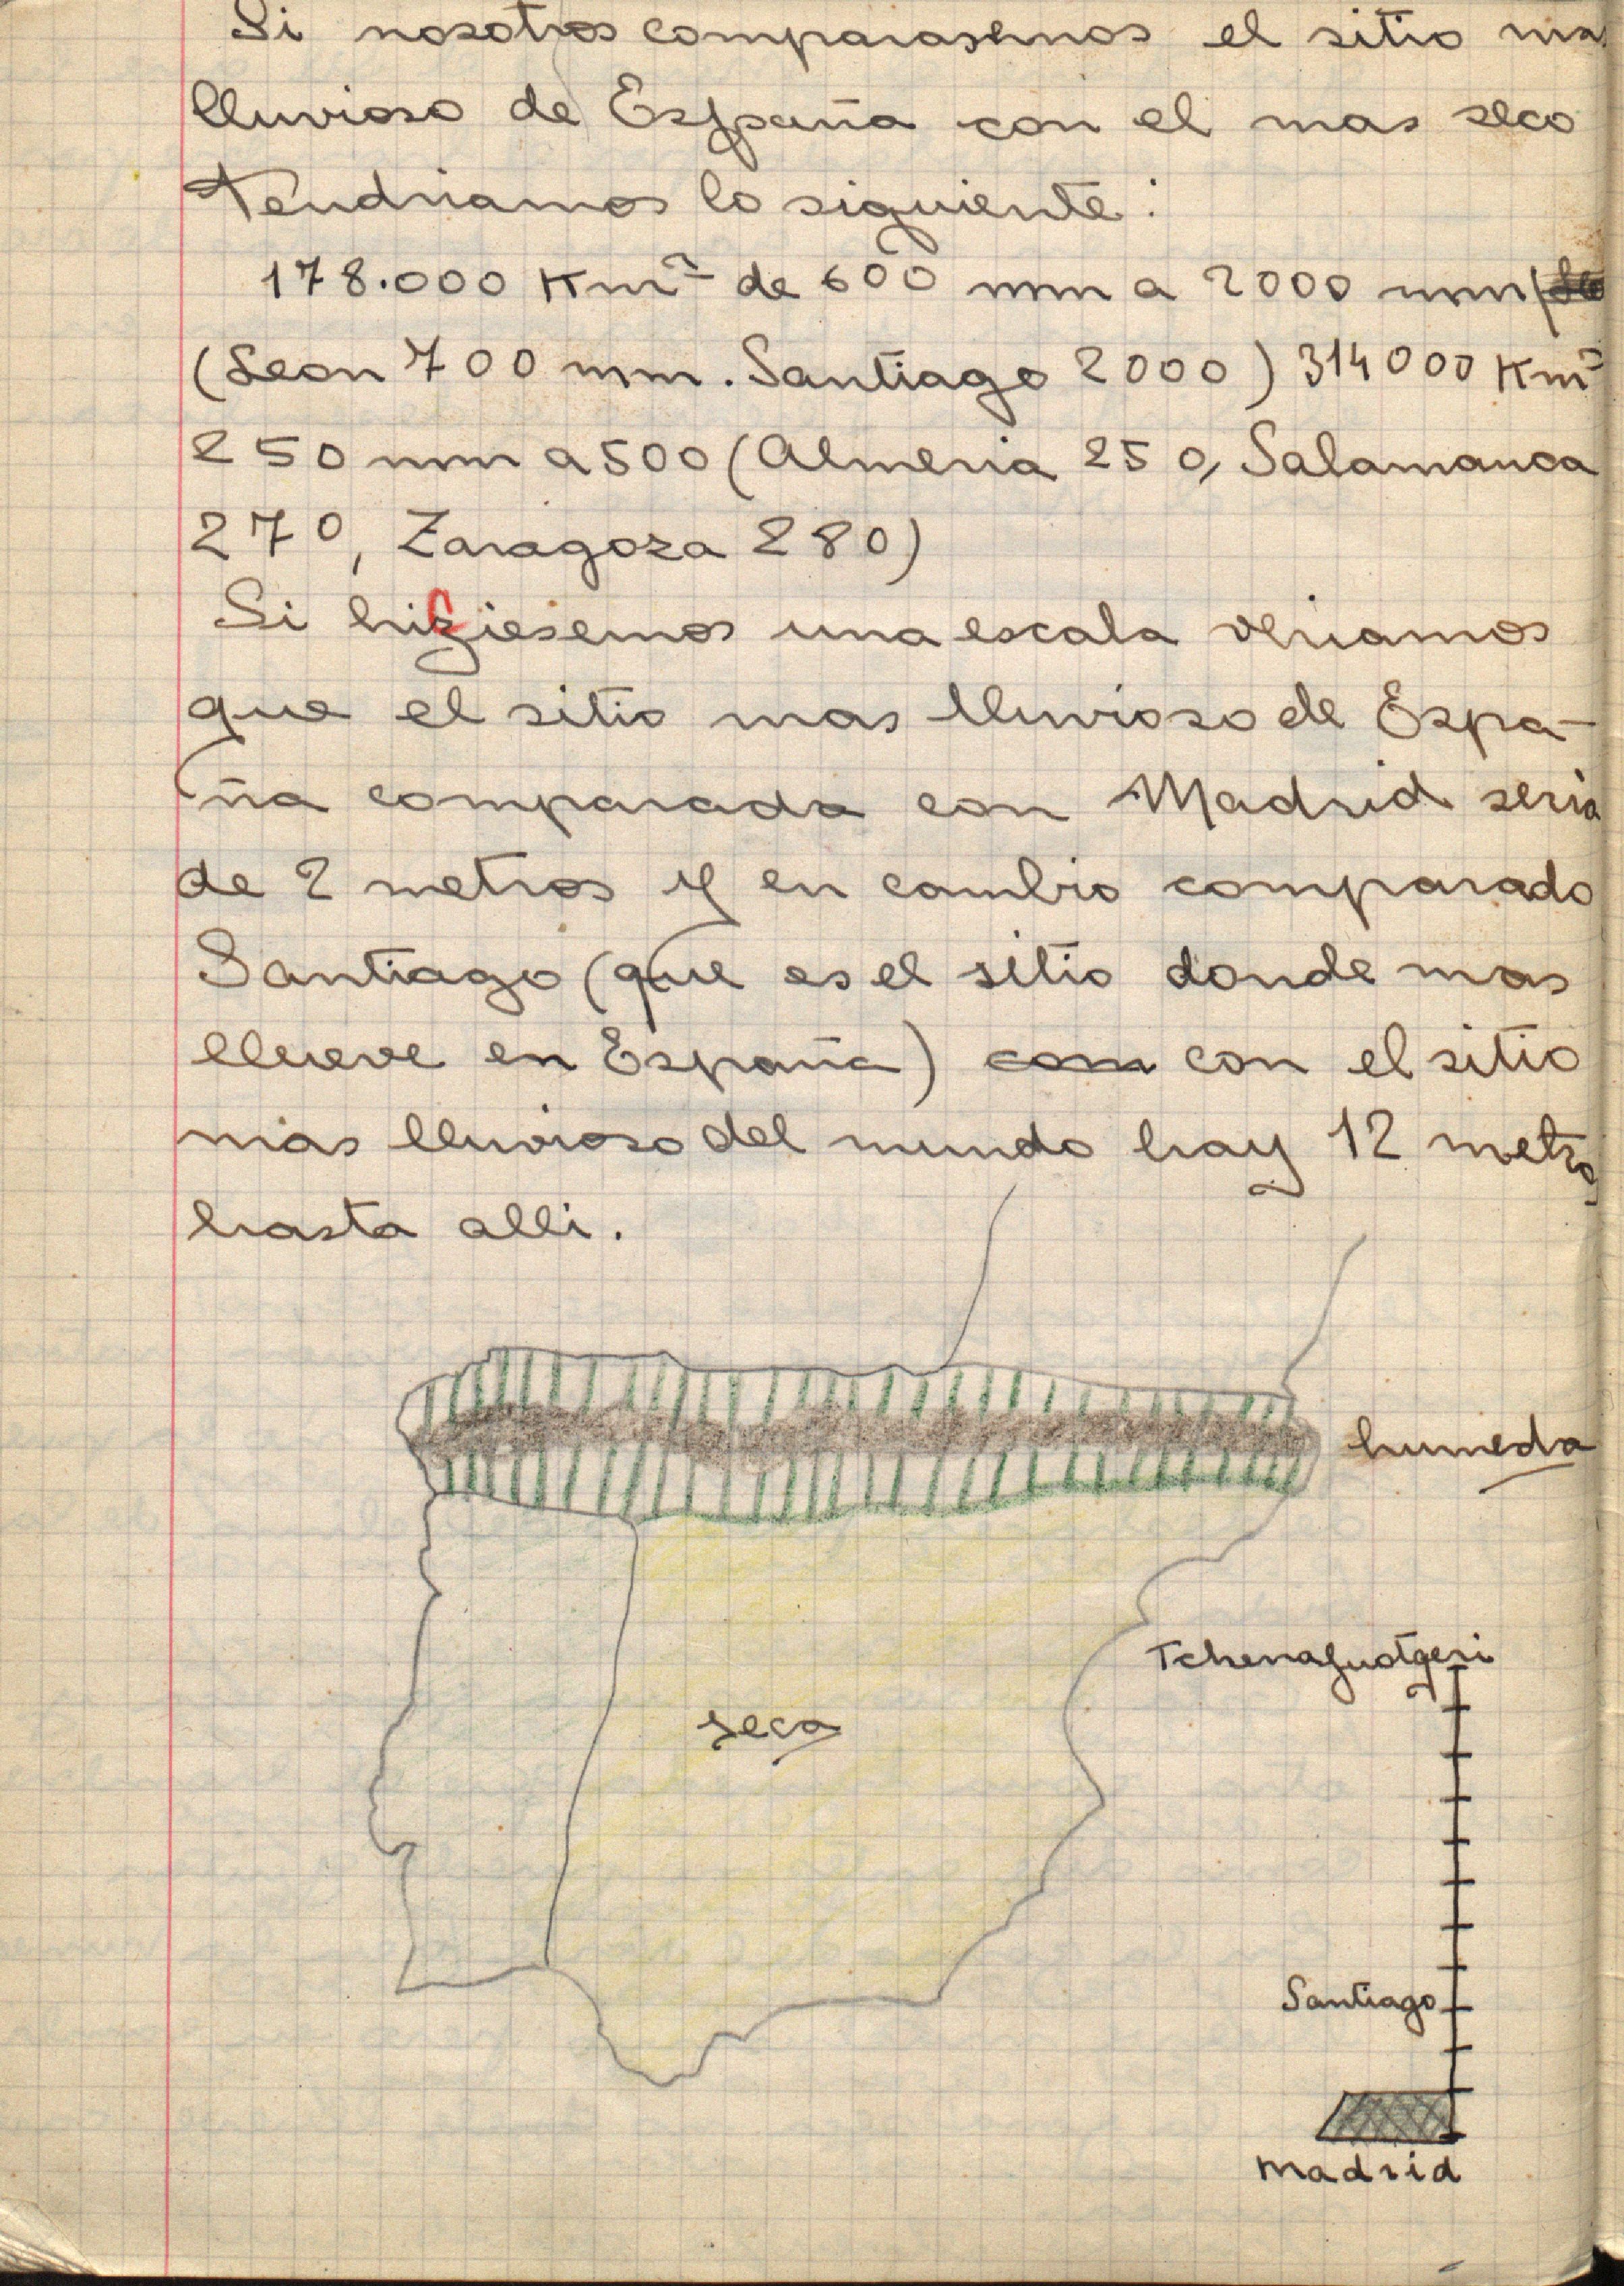 Si nosotros comparasemos el sitio mas
lluvioso de España con el mas seco
tendriamos lo siguiente:
178.000 Km² de 600 mm a 2000 mm
(Leon 700 mm. Santiago 2000) 314000 Km²
250 mm a 500 (Almeria 250, Salamanca
270, Zaragoza 280)
Si hiciesemos una escala veriamos
que el sitio mas lluvioso de Espa-
ña comparada con Madrid seria
de 2 metros y en cambio comparado
Santiago (que es el sitio donde mas
llueve en España) com con el sitio
mas lluvioso del mundo hay 12 metros
hasta alli.
humeda
seca
Santiago
Madrid